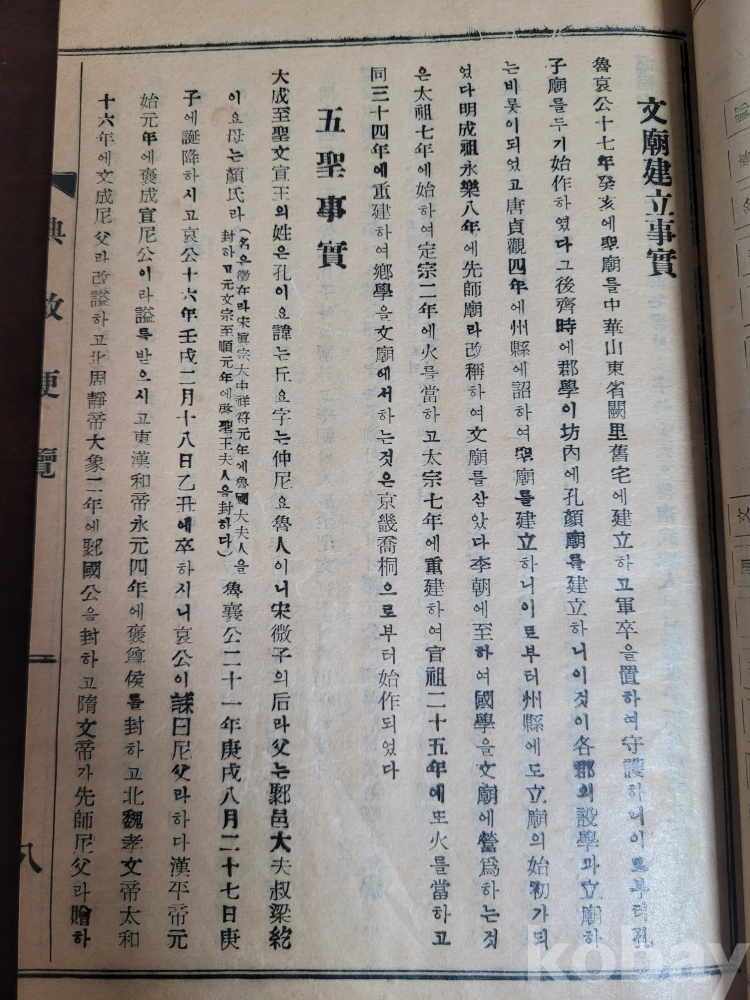 文廟建立事實
魯哀公十七年癸亥에聖廟를中華山東省闕里舊宅에建立하고軍卒을置하여守護하니이로부터孔
子廟를두기始作하였다그後齊時에郡學이坊內에孔顔廟를建立하니이것이各郡의設學과立廟하
는비롯이되었고唐貞觀四年에州縣에詔하여聖廟를建立하니이로부터州縣에도立廟의始初가되
였다明成祖永樂八年에先師廟라改稱하여文廟를삼았다李朝에至하여國學을文廟에營爲하는것
은太祖七年에始하여定宗二年에火를當하고太宗七年에重建하여宣祖二十五年에또火를當하고
同三十四年에重建하여鄕學을文廟에서하는것은京畿喬桐으로부터始作되었다
五聖事實
大成至聖文宣王의姓은孔이요諱는丘요字는仲尼요魯人이니宋微子의后라父는鄹邑大夫叔梁紇
이요母는顔氏라(名은徵在라宋眞宗大中祥符元年에魯國大夫人을
封하고元文宗至順元年에啓聖王夫人을封하다)魯襄公二十一年庚戌八月二十七日庚
子에誕降하시고哀公十六年壬戌二月十八日乙丑에卒하시니哀公이誄曰尼父라하다漢平帝元
始元年에褒成宣尼公이라謚를받으시고東漢和帝永元四年에褒尊侯를封하고北魏孝文帝太和
十六年에文成尼父라改謚하고北周靜帝大象二年에鄹國公을封하고隋文帝가先師尼父라贈하
典敎便覽
八
kobay